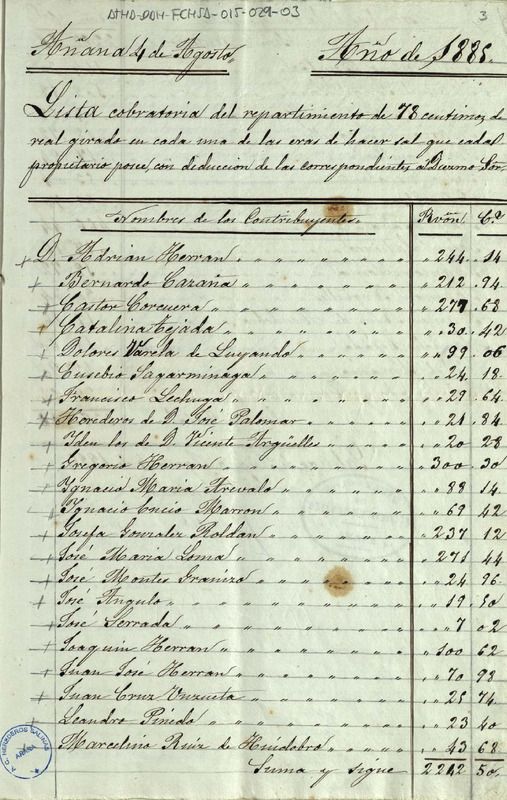 ATHA-DAH-FCHSA-015-029-03
3
Añana 4 de Agosto Año de 1885.
Lista cobratoria del repartimiento de 78 centimos de
real girado en cada una de las eras de hacer sal que cada
propietario posee, con deduccion de las correspondientes al Diezmo
Nombres de los Contribuyentes. Rvón C.s
D. Adrian Herran 244 14
Bernardo Cazaña 212 94
Castor Corcuera 277 68
Catalina Tejada 30 42
Dolores Varela de Luyando 99 06
Eusebio Sagarminaga 24 18
Francisco Lechuga 29 64
Herederos de D. José Palomar 21 84
Iden los de D. Vicente Argüelles 20 28
Gregorio Herran 300 30
Ignacio Maria Arevalo 88 14
Ignacio Encio Marron 69 42
Josefa Gonzalez Roldan 237 12
José Maria Loma 271 44
José Montes 24 96
José Angulo 19 50
José Serrada 7 02
Joaquin Herran 100 62
Juan José Herran 70 98
Juan Cruz Unzueta 25 74
Leandro Pinedo 23 40
Marcelino Ruiz de Huidobro 43 68
Suma y sigue 2242 50
A.C. HEREDEROS SALINAS
ARABA